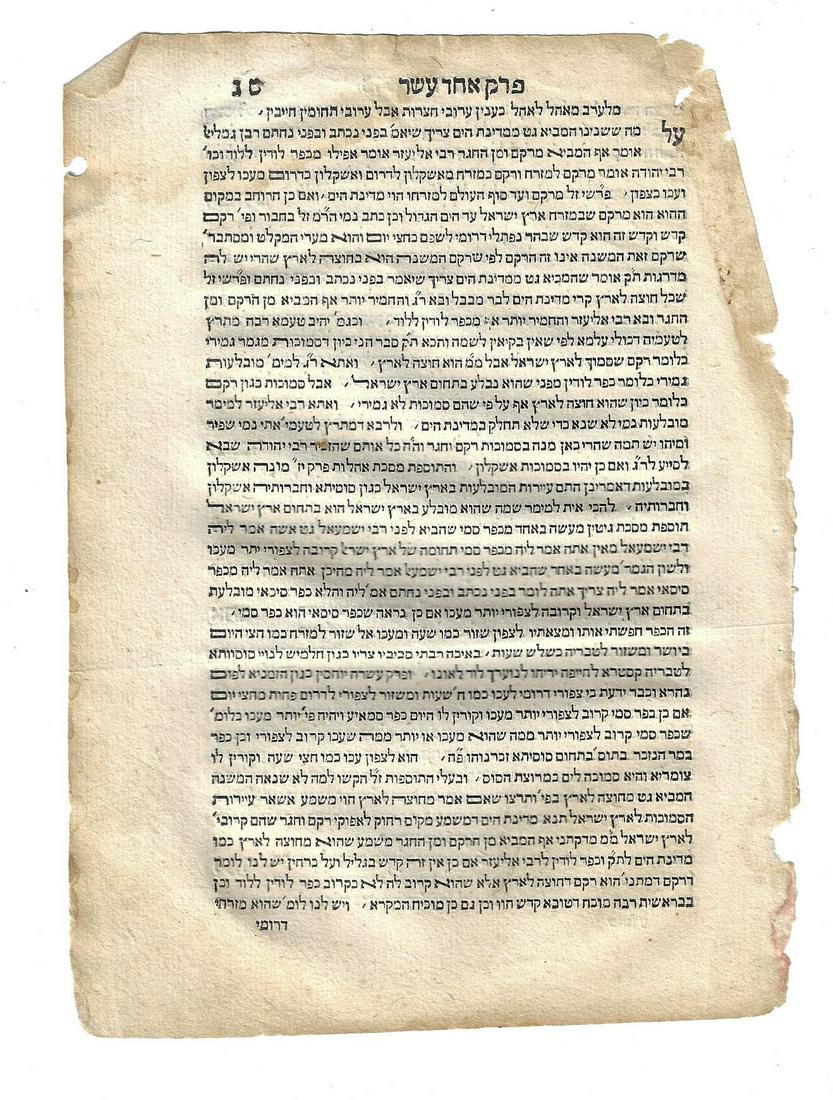 פרק אחד עשר ס נ
מלערב מאהל לאהל בענין ערובי חצרות אבל ערובי תחומין חייבין ׳
על מה ששנינו המביא גט ממדינת הים צריך שיאמ׳ בפני נכתב ובפני נחתם רבן גמליא׳
אומר אף המביא מרקם ומן החגר רבי אליעזר אומר אפילו מכפר לודין ללוד וכו׳
רבי יהודה אומר מרקם למזרח ורקם כמזרח מאשקלון לדרום ואשקלון כדרום מעכו לצפון
ועכו כצפון ׳ פרשי זל מרקם ועד סוף העולם למזרחו הוי מדינת הים ׳ ואם כן הרוחב במקום
ההוא הוא מרקם שבמזרח ארץ ישראל עד הים הגדול וכן כתב נמי הר״מ זל בחבור ופי׳ רקם
קדש וקדש זה הוא קדש שבהר נפתלי דרומי לשפם כחצי יום והוא מערי המקלט ומסתבר׳
שרקם זאת המשנה אינו זה הרקם לפי שרקם המשנה הוא בחוצה לארץ שהרי יש לה
מדרגות ת״ק אומר שהמביא גט ממדינת הים צריך שיאמר בפני נכתב ובפני נחתם ופרשי זל
שכל חוצה לארץ קרי מדינת הים לבר מבבל ובא ר״ג והחמיר יותר אף המביא מן הרקם ומן
החגר ובא רבי אליעזר והחמיר יותר א׳ מכפר לודין ללוד ׳ וכגמ׳ יהיב טעמא רבה מתרץ
לטעמיה דכולי עלמא לפי שאין בקיאין לשמה ותכא ת״ק סבר הני כיון דסמוכות מגמר גמירי
כלומר רקם שסמוך לארץ ישראל אבל מ״מ הוא חוצה לארץ ׳ ואתא ר״ג למימ׳ מובלעות
גמירי כלומר כפר לודין מפני שהוא נבלע בתחום ארץ ישראל ׳ אבל סמוכות כגון רקם
כלומר כיון שהוא חוצה לארץ אף על פי שהם סמוכות לא גמירי ׳ ואתא רבי אליעזר למימר
מובלעות נמי לא שנא כדי שלא תחלק במדינת הים ׳ ולרבא דמתרץ לטעמי׳ אתי נמי שפיר
ומיהו יש תמה שהרי כאן מנה בסמוכות רקם וחגר וה״ה כל אותם שהזכיר רבי יהודה שבא
לסייע לר״ג ואם כן יהיו בסמוכות אשקלון ׳ והתוספת מסכת אהלות פרק י״ז מונה אשקלון
במובלעות דאמרינן התם עיירות המובלעות בארץ ישראל כגון סוסיתא וחברותיה אשקלון
וחברותיה ׳ להכי אית למימר שמה שהוא מובלע בארץ ישראל הוא בתחום ארץ ישראל
תוספת מסכת גיטין מעשה באחד מכפר סמי שהביא לפני רבי ישמעאל גט אשה אמר ליה
רבי ישמעאל מאין אתה אמר ליה מכפר סמי תחומה של ארץ ישרא׳ קרובה לצפורי יתר מעכו
ולשון הגמר׳ מעשה באחד שהביא גט לפני רבי ישמעא׳ אמר ליה מהיכן אתה אמר ליה מכפר
סיסאי אמר ליה צריך אתה לומר בפני נכתב ובפני נחתם אמ׳ ליה והלא כפר סיכאי מובלעת
בתחום ארץ ישראל וקרובה לצפורי יותר מעכו אם כן נראה שכפר סיסאי הוא כפר סמי ׳
זה הכפר חפשתי אותו ומצאתיו לצפון שזור כמו שעה ומעכו אל שזור למזרח כמו חצי היום
ביושר ומשזור לטבריה כשלש שעות ׳ באיכה רבתי סביביו צריו כגון חלמיש לנויי סוסיתא
לטבריה קסטרא לחייפה יריחו לנוערן לוד לאונו ׳ ופרק עשרה יוחסין כגון הזמניא לפום
נהרא וכבר ידעת כי צפורי דרומי לעכו כמו ח׳ שעות ומשזור לצפורי לדרום פחות מחצי יום
אם כן כפר סמי קרוב לצפורי יותר מעכו וקורין לו היום כפר סמאיע ויהיה פי׳ יותר מעכו כלומ׳
שכפר סמי קרוב לצפורי יותר ממה שהוא מעכו או יותר ממה שעכו קרוב לצפורי וכן כפר
במר הנזכר בתוס׳ בתחום סוסיתא זכרנוהו פ״ה ׳ הוא לצפון עכו כמו חצי שעה וקורין לו
צומריא והיא סמוכה לים כמרוצת הסוס ׳ ובעלי התוספות ז״ל הקשו למה לא שנאה המשנה
המביא גט מחוצה לארץ בפי׳ ותרצו שאם אמר מחוצה לארץ הוי משמע אשאר עיירות
הסמוכות לארץ ישראל תנא מדינת הים דמשמע מקום רחוק לאפוקי רקם וחגר שהם קרובי׳
לארץ ישראל מ״מ מדקתני אף המביא מן הרקם ומן החגר משמע שהוא מחוצה לארץ כמו
מדינת הים לת״ק וכפר לודין לרבי אליעזר אם כן אין זה קדש בגליל ועל כרחין יש לנו לומר
דרקם דמתני׳ הוא רקם דחוצה לארץ אלא שהוא קרוב לה לא בקרוב כפר לודין ללוד וכן
בבראשית רבה מוכח דטובא קדש הוו וכן גם כן מוכיח המקרא ׳ ויש לנו לומ׳ שהוא מזרחי
דרומי